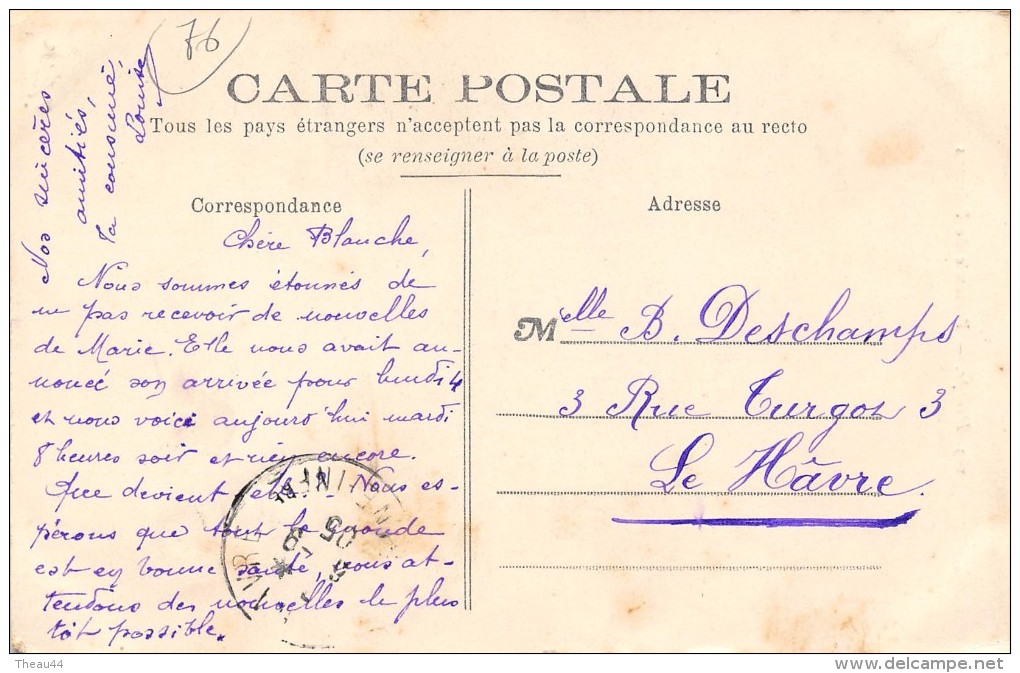 76
CARTE POSTALE
Tous les pays étrangers n'acceptent pas la correspondance au recto
(se renseigner à la poste)
Correspondance
Adresse
Chère Blanche,
Nous sommes étonnés de
ne pas recevoir de nouvelles
de Marie. Elle nous avait an-
noncé son arrivée pour lundi 4
et nous voici aujourd'hui mardi
8 heures soir et rien encore.
Que devient elle. Nous es-
pérons que tout le monde
est en bonne santé, nous at-
tendons des nouvelles le plus
tôt possible.
Nos sincères
amitiés,
Ta cousine,
Louise
Melle B. Deschamps
3 Rue Turgot 3
Le Hâvre.
Theau44
delcampe.net